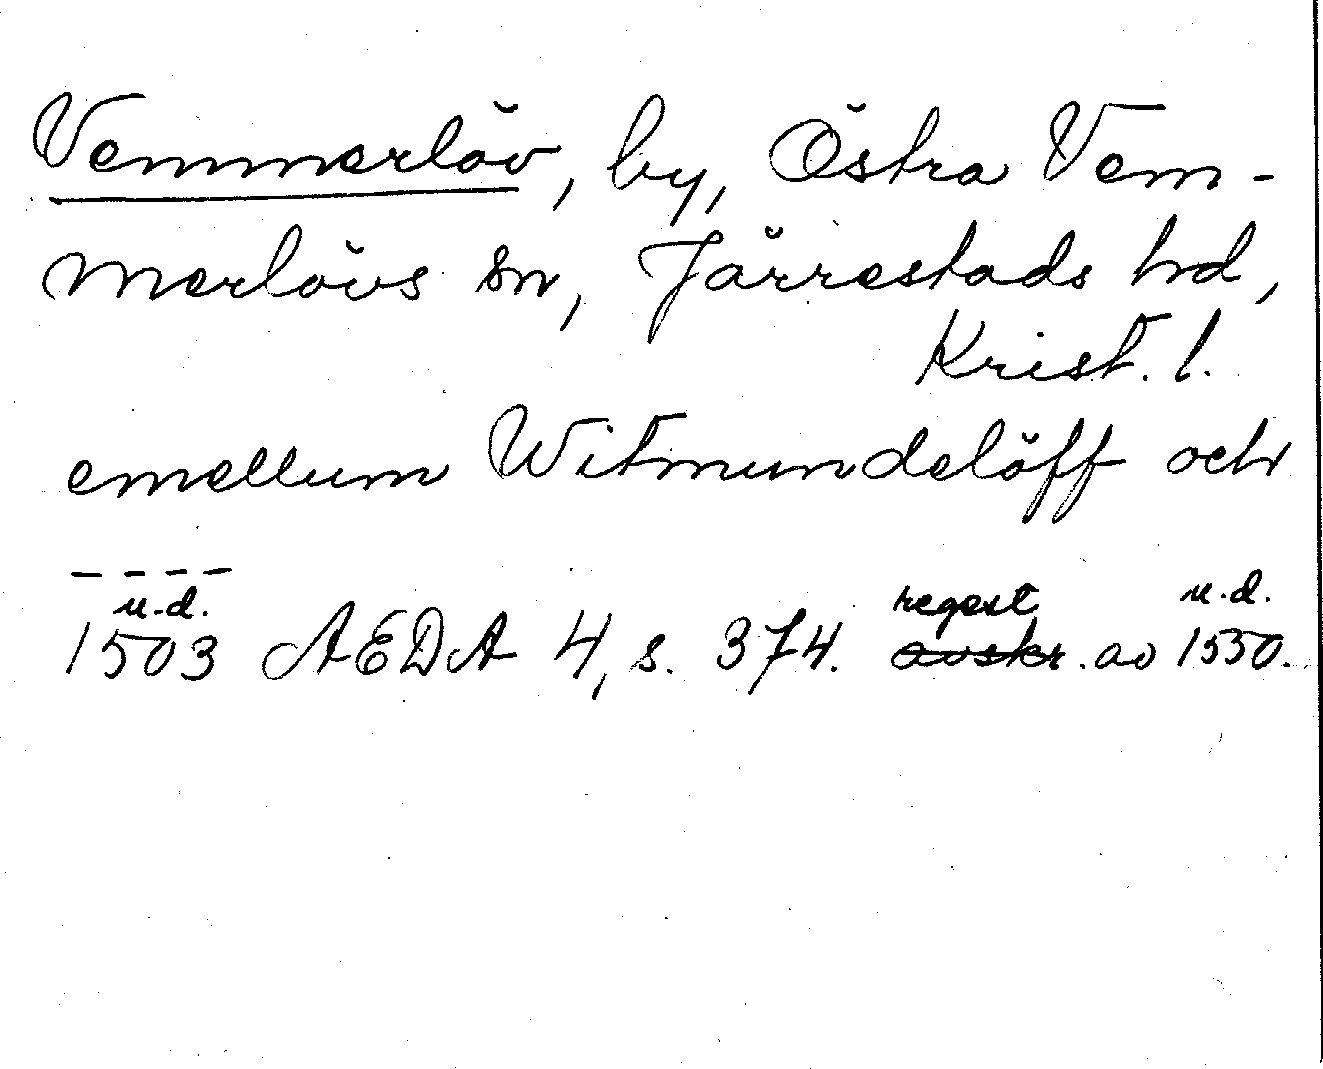 Vemmerlöv, by, Östra Vem-
merlövs sn, Järrestads hd,
Krist. l.
emellum Witmundelöff och
----
u.d. regest u.d.
1503 AEDA 4, s. 374. avskr. av 1550.